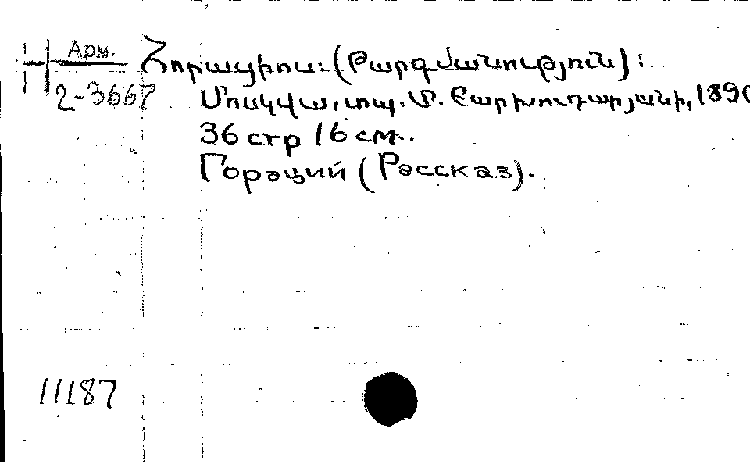 Арм.
2-3667
Հորացիոս: (Թարգմանություն):
Մոսկվա, տպ. Մ. Բարխուդարյանի, 1890
36 стр 16 см.
Гораций (Рассказ).
11187